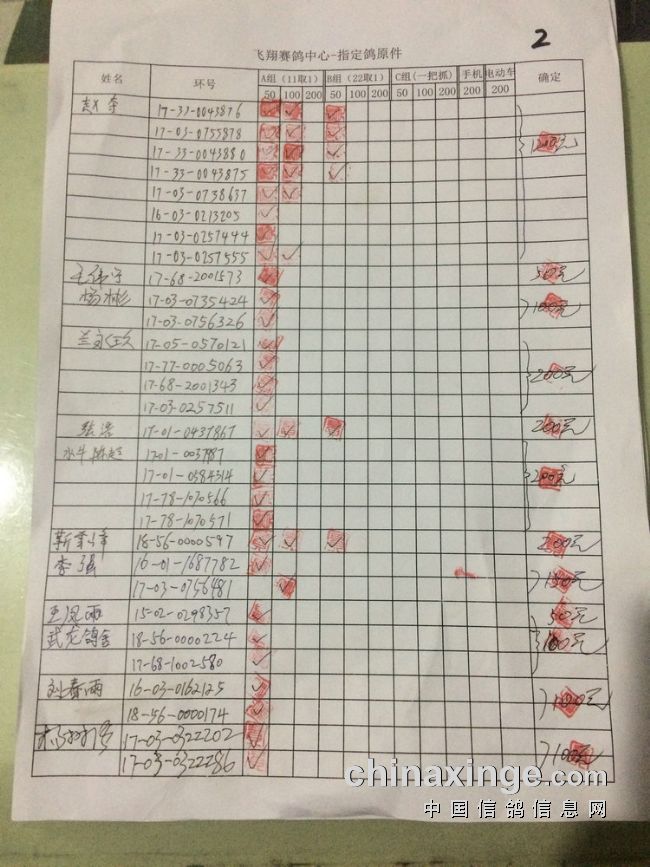 2
飞翔赛鸽中心-指定鸽原件
姓名 环号 A组 (11取1) B组 (22取1) C组 (一把抓) 手机 电动车 确定
50 100 200 50 100 200 50 100 200 200 200
17-33-0043876 ✓ ✓ ✓
17-03-0755878 ✓ ✓ ✓
17-33-0043880 ✓ ✓ ✓
17-33-0043875 ✓ ✓ ✓
17-03-0738637 ✓ ✓
16-03-0213205 ✓
17-03-0257444 ✓
17-03-0257555 ✓ ✓
17-68-2001573 ✓ 50元
杨彬 17-03-0735424 ✓ 100元
17-03-0756326 ✓
17-05-0570121 ✓
17-77-0005063 ✓ 200元
17-68-2001343 ✓
17-03-0257511 ✓
17-01-0437867 ✓ ✓ ✓ 200元
1701-0037987 ✓
17-01-0384314 ✓ 200元
17-78-1070566 ✓
17-78-1070571 ✓
18-56-0000597 ✓ ✓ ✓ 200元
李强 16-01-1687782 ✓
17-03-0756481 ✓ 150元
王凤雨 15-02-0298357 ✓ 50元
武龙鸽舍 18-56-0000224 ✓ 100元
17-68-1002580 ✓
刘春雨 16-03-0162125 ✓ 100元
18-56-0000174 ✓
17-03-0322202 ✓
17-03-0322286 ✓ 100元
chinaxinge·com
中国信鸽信息网